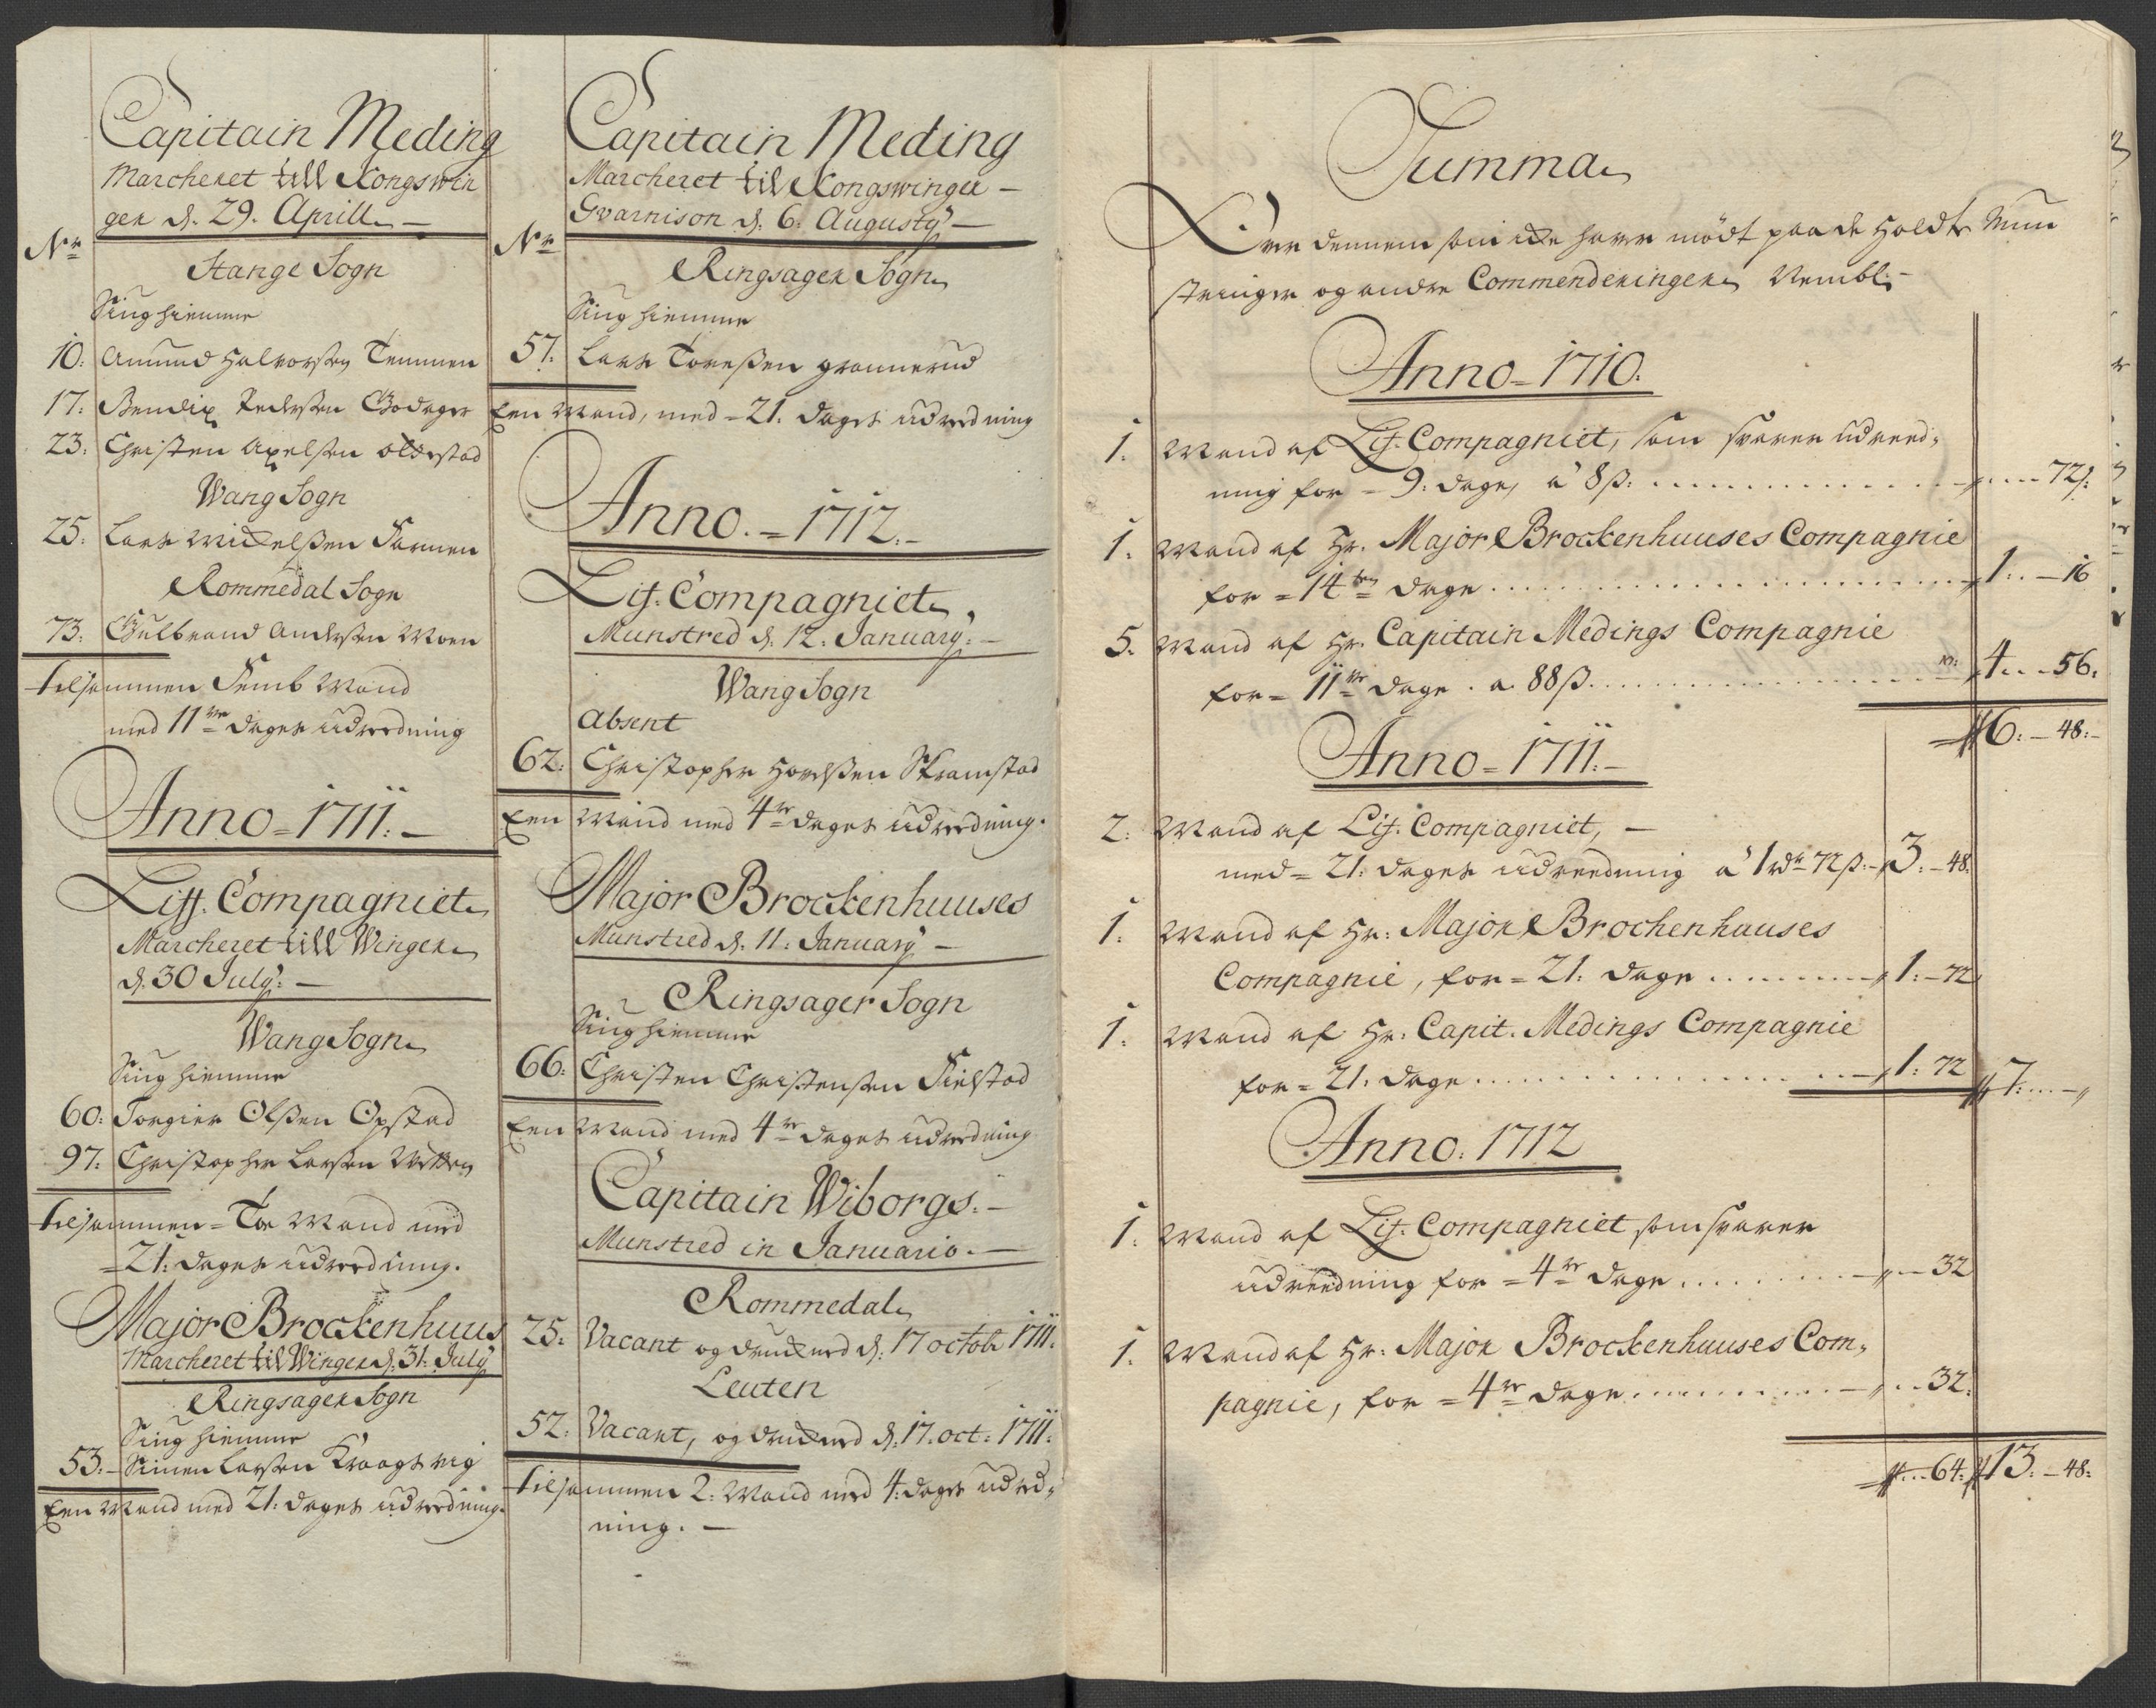 Capitain Meding
Marcheret till Kongswin
ger d. 29. Aprill
Nr
Stange Sogn
Siug hiemme
10: Amund Halvorsen Temmen
17: Bendix Pedersen Godager
23: Christen Axelsen oldestad
Wang Sogn
25: Lars Mickelsen Farmen
Rommedal Sogn
73: Gulbrand Andersen Moen
tilsammen Femb Mand
med 11ve dages udreedning
Anno = 1711. —
Liff. Compagniet
Marcheret till Winger
d. 30 July: —
Wang Sogn
Siug hiemme
60: Torgier Olsen Opstad
97: Christopher Larsen
tilsammen = Toe Mand med
= 21: dages udreedning.
Major Brockenhuus
Marcheret til Winger d. 31: July
Ringsager Sogn
Siug hiemme
53. – Simen Larsen Kraagsvig
Een Mand med 21: dages udreedning.
Capitain Meding
Marcheret til Kongswinger —
Gvarnison d. 6. Augusty —
Nr
Ringsager Sogn
Siug hiemme
57. Lars Toresen grannerud
Een Mand, med = 21. dages udreedning
Anno. = 1712. –
Lif. Compagniet.
Munstred d. 12. January. —
Wang Sogn
absent
62: Christopher Skramstad
Een Mand med 4re dages udreedning.
Major Brockenhuuses
Munstred d. 11: January —
Ringsager Sogn
Siug hiemme
66: Christen Christensen Fielstad
Een Mand med 4re dages udreedning
Capitain Wiborgs. –
Munstred in Januario. —
Rommedal
25: Vacant og d. 17 octobr 1711.
Leuten
52: Vacant, og d. 17. oct: 1711.
tilsammen 2: Mand med 4: dages udred,
ning. —
Summa
Over dennem som icke haver mödt paa de holdte Mun
stringer og andre Commenderinger Nembl: –
Anno = 1710.
1. Mand af Lif. Compagniet, som svarer udreed,
ning for = 9: dage, á 8ß: ........ „ — 72ß:
1. Mand af Hr. Major Brockenhuuses Compagnie
for = 14ten dage ........ 1: — 16
5. Mand af Hr. Capitain Medings Compagnie
for = 11ve dage . a. 88ß ........ 4 .. — 56:
6: — 48: –
Anno = 1711. –
2: Mand af Lif. Compagniet, —
med = 21: dages udreedning á 1 rdr 72ß: – 3: – 48:
1. Mand af Hr: Major Brochenhuuses
Compagnie, for = 21: dage ........ 1: – 72
1. Mand af Hr: Capit. Medings Compagnie
for = 21: dage ........ 1: 72 7: .... — „
Anno. 1712
1. Mand af Lif. Compagniet som svarer
udreedning for = 4re dage ........ „ — 32
1. Mand af Hr: Major Brockenhuuses Com,
pagnie, for = 4re dage ........ — „ .. 32:
„ .. 64: 13. – 48: